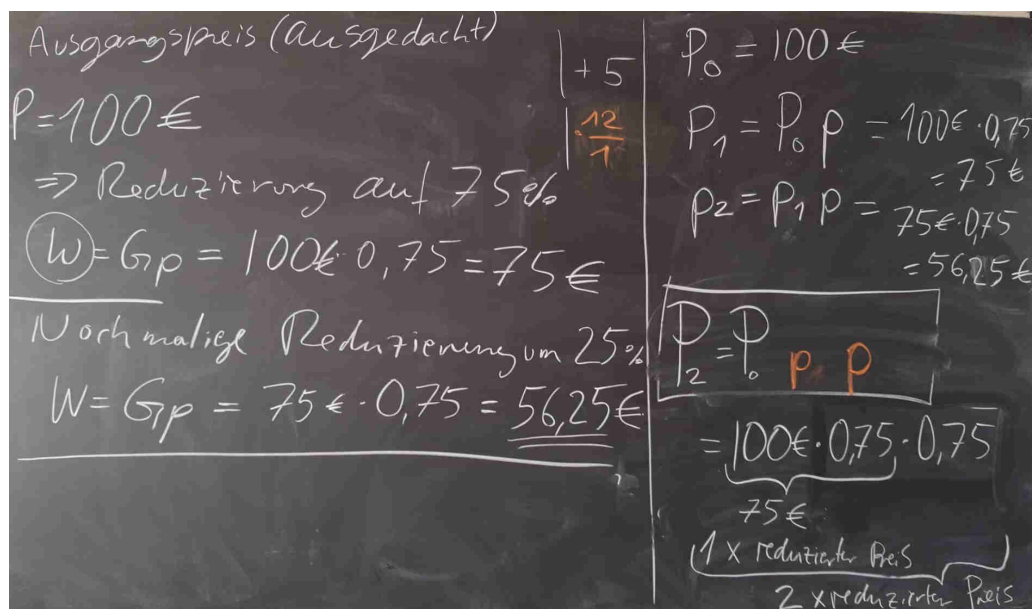 Ausgangspreis (ausgedacht)
P = 100 €
⇒ Reduzierung auf 75%
W = G p = 100€ · 0,75 = 75 €
Nochmalige Reduzierung um 25%
W = G p = 75 € · 0,75 = 56,25 €
| + 5
| · 12/1
P₀ = 100 €
P₁ = P₀ p = 100€ · 0,75
= 75 €
p₂ = p₁ p = 75€ · 0,75
= 56,25 €
P₂ = P₀ p · p
= 100€ · 0,75 · 0,75
75 €
1 x reduzierter Preis
2 x reduzierter Preis